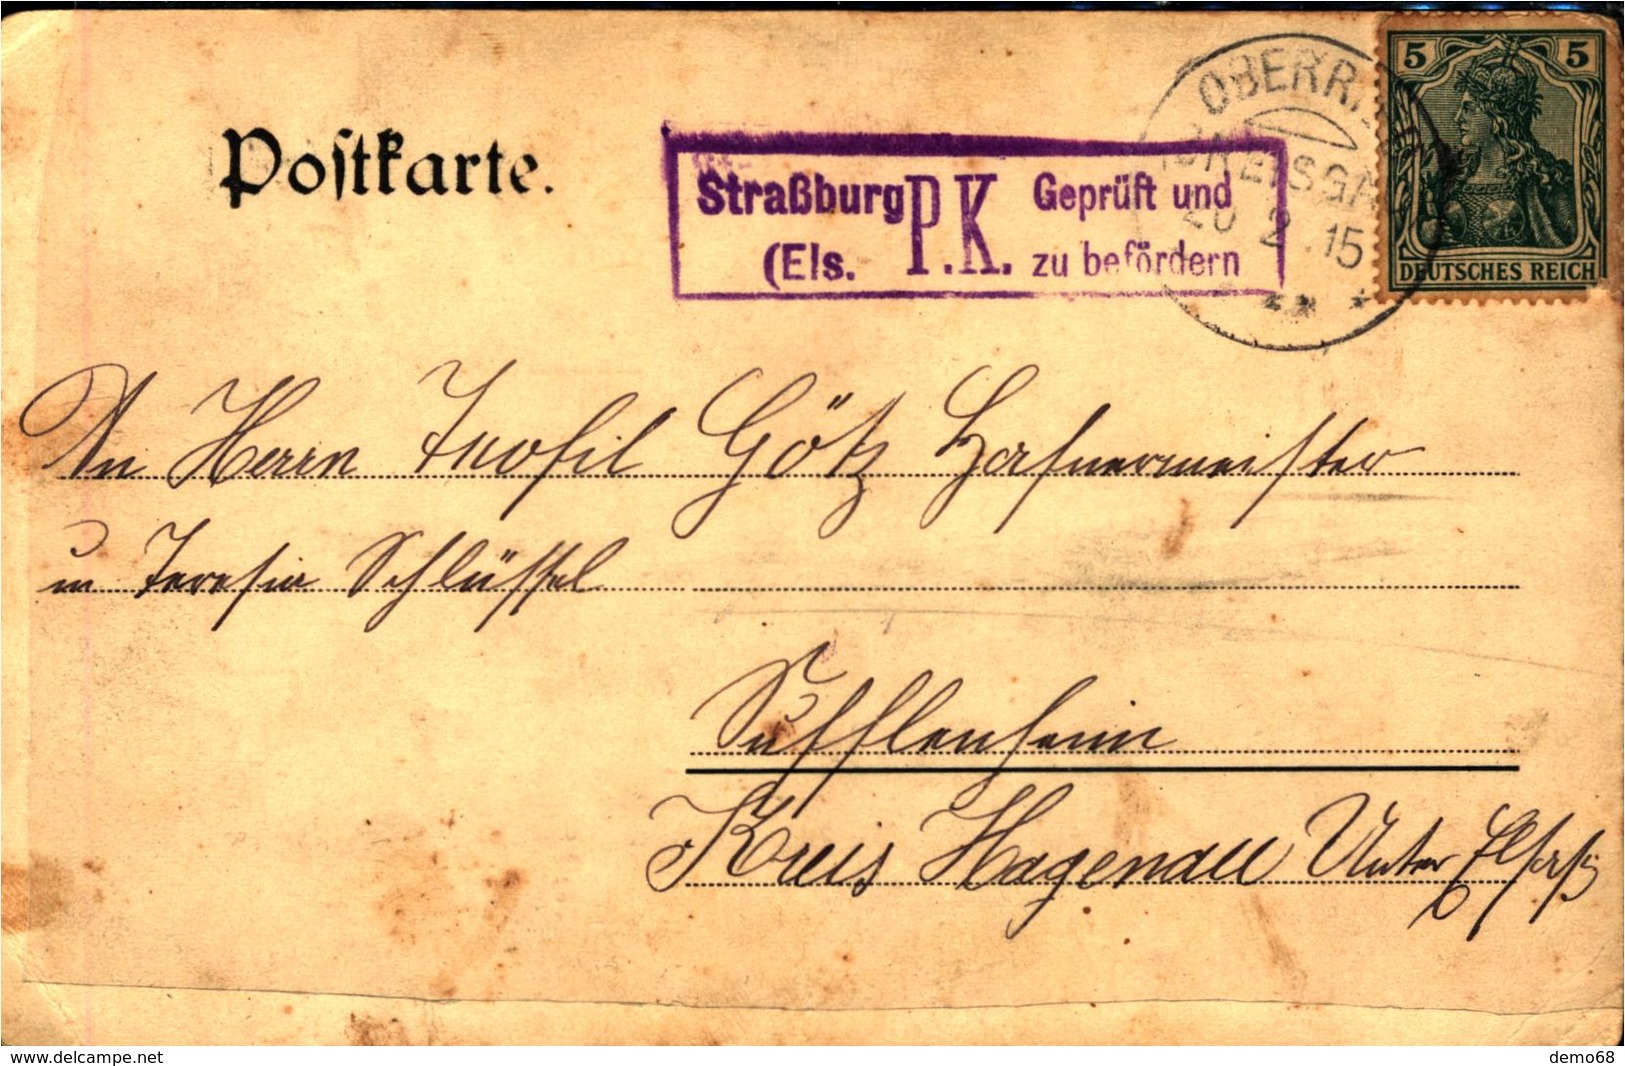 Postkarte.
Straßburg P.K. Geprüft und
(Els. zu befördern
OBERR
BREISGA
20 2 .15
5 5
DEUTSCHES REICH
An Herrn Teofil Götz Hafnermeister
u Teresia Schlüssel
Sufflenheim
Kreis Hagenau Unter Elsaß
www.delcampe.net
demo68